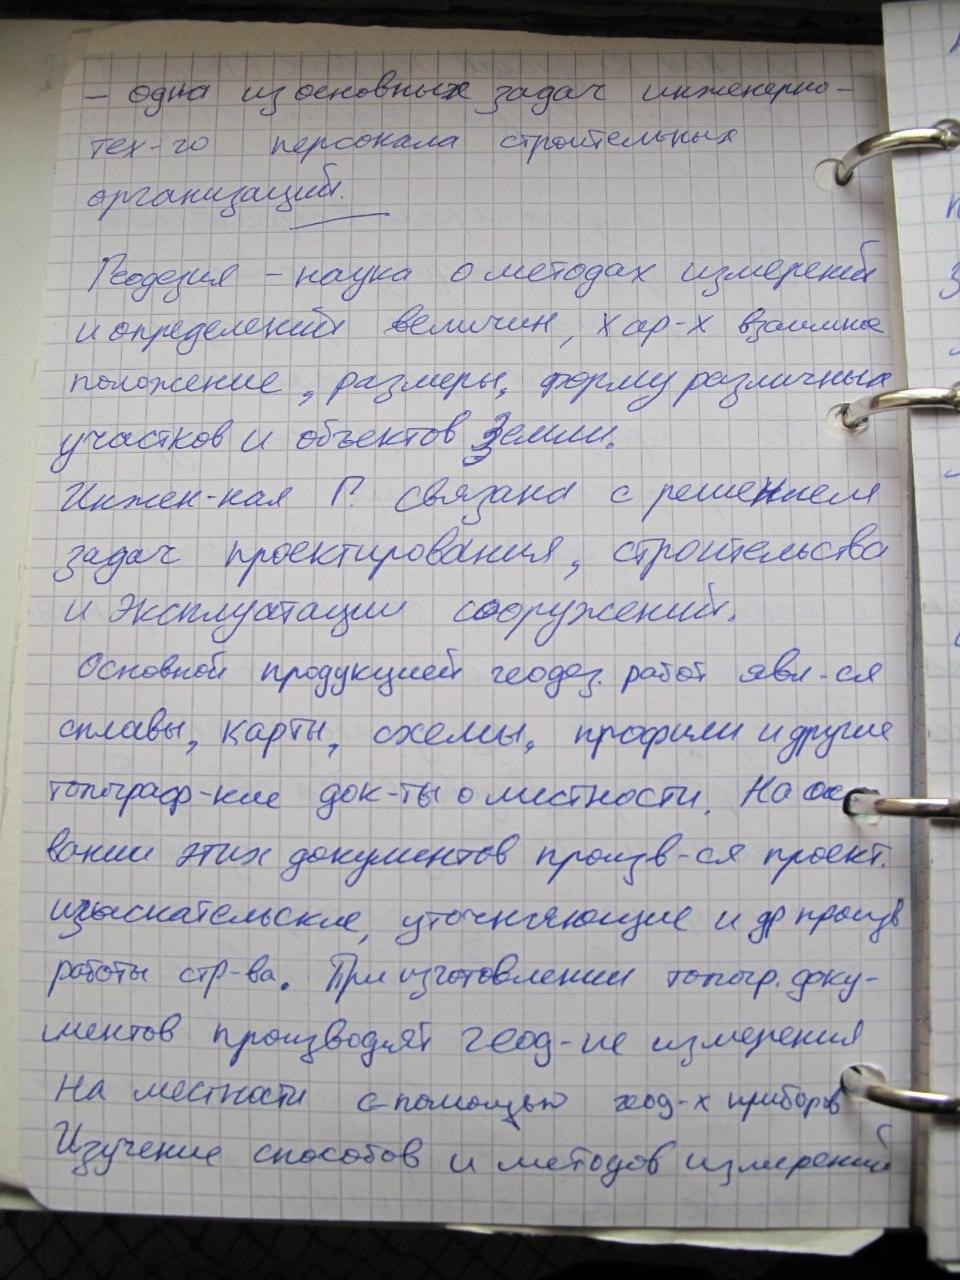 – одна из основных задач инженерно-
тех-го персонала строительных
организаций.
Геодезия – наука о методах измерений
и определений величин, хар-х взаимное
положение, размеры, форму различных
участков и объектов Земли.
Инжен-ная Г. связана с решением
задач проектирования, строительства
и эксплуатации сооружений.
Основной продукцией геодез. работ явл-ся
сплавы, карты, схемы, профили и другие
топограф-кие док-ты о местности. На ос
вании этих документов произв-ся проект.
изыскательские, уточняющие и др произв
работы стр-ва. При изготовлении топогр. доку-
ментов производят геод-ие измерения
на местности с помощью геод-х приборов
Изучение способов и методов измерений